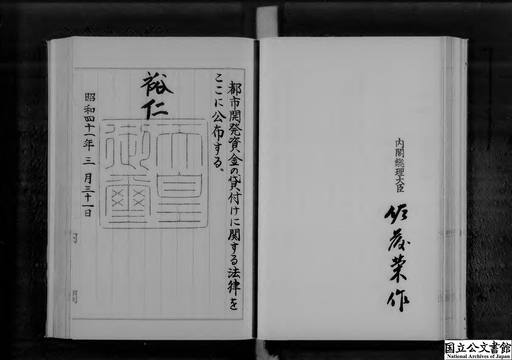 都市開発資金の貸付けに関する法律を
ここに公布する。
裕仁
天皇御璽
昭和四十一年三月三十一日
内閣総理大臣
佐藤榮作
国立公文書館
National Archives of Japan